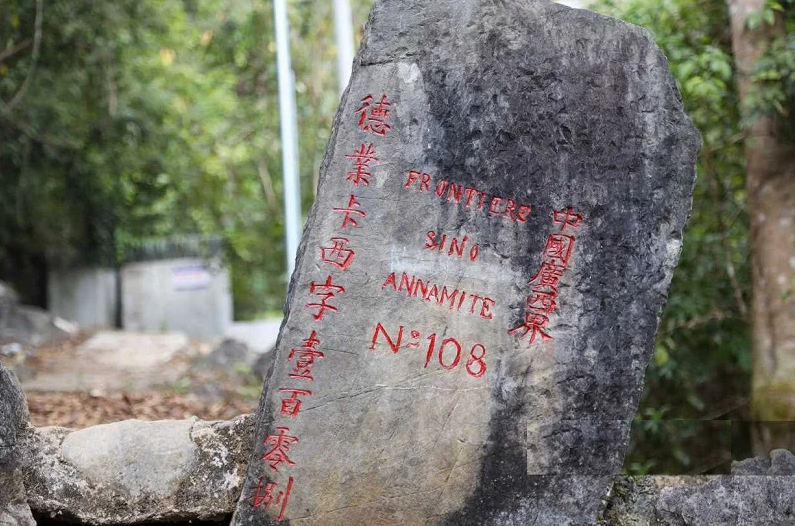 中國廣西界
FRONTIERE
SINO
ANNAMITE
Nº 108
德業卡西字壹百零捌